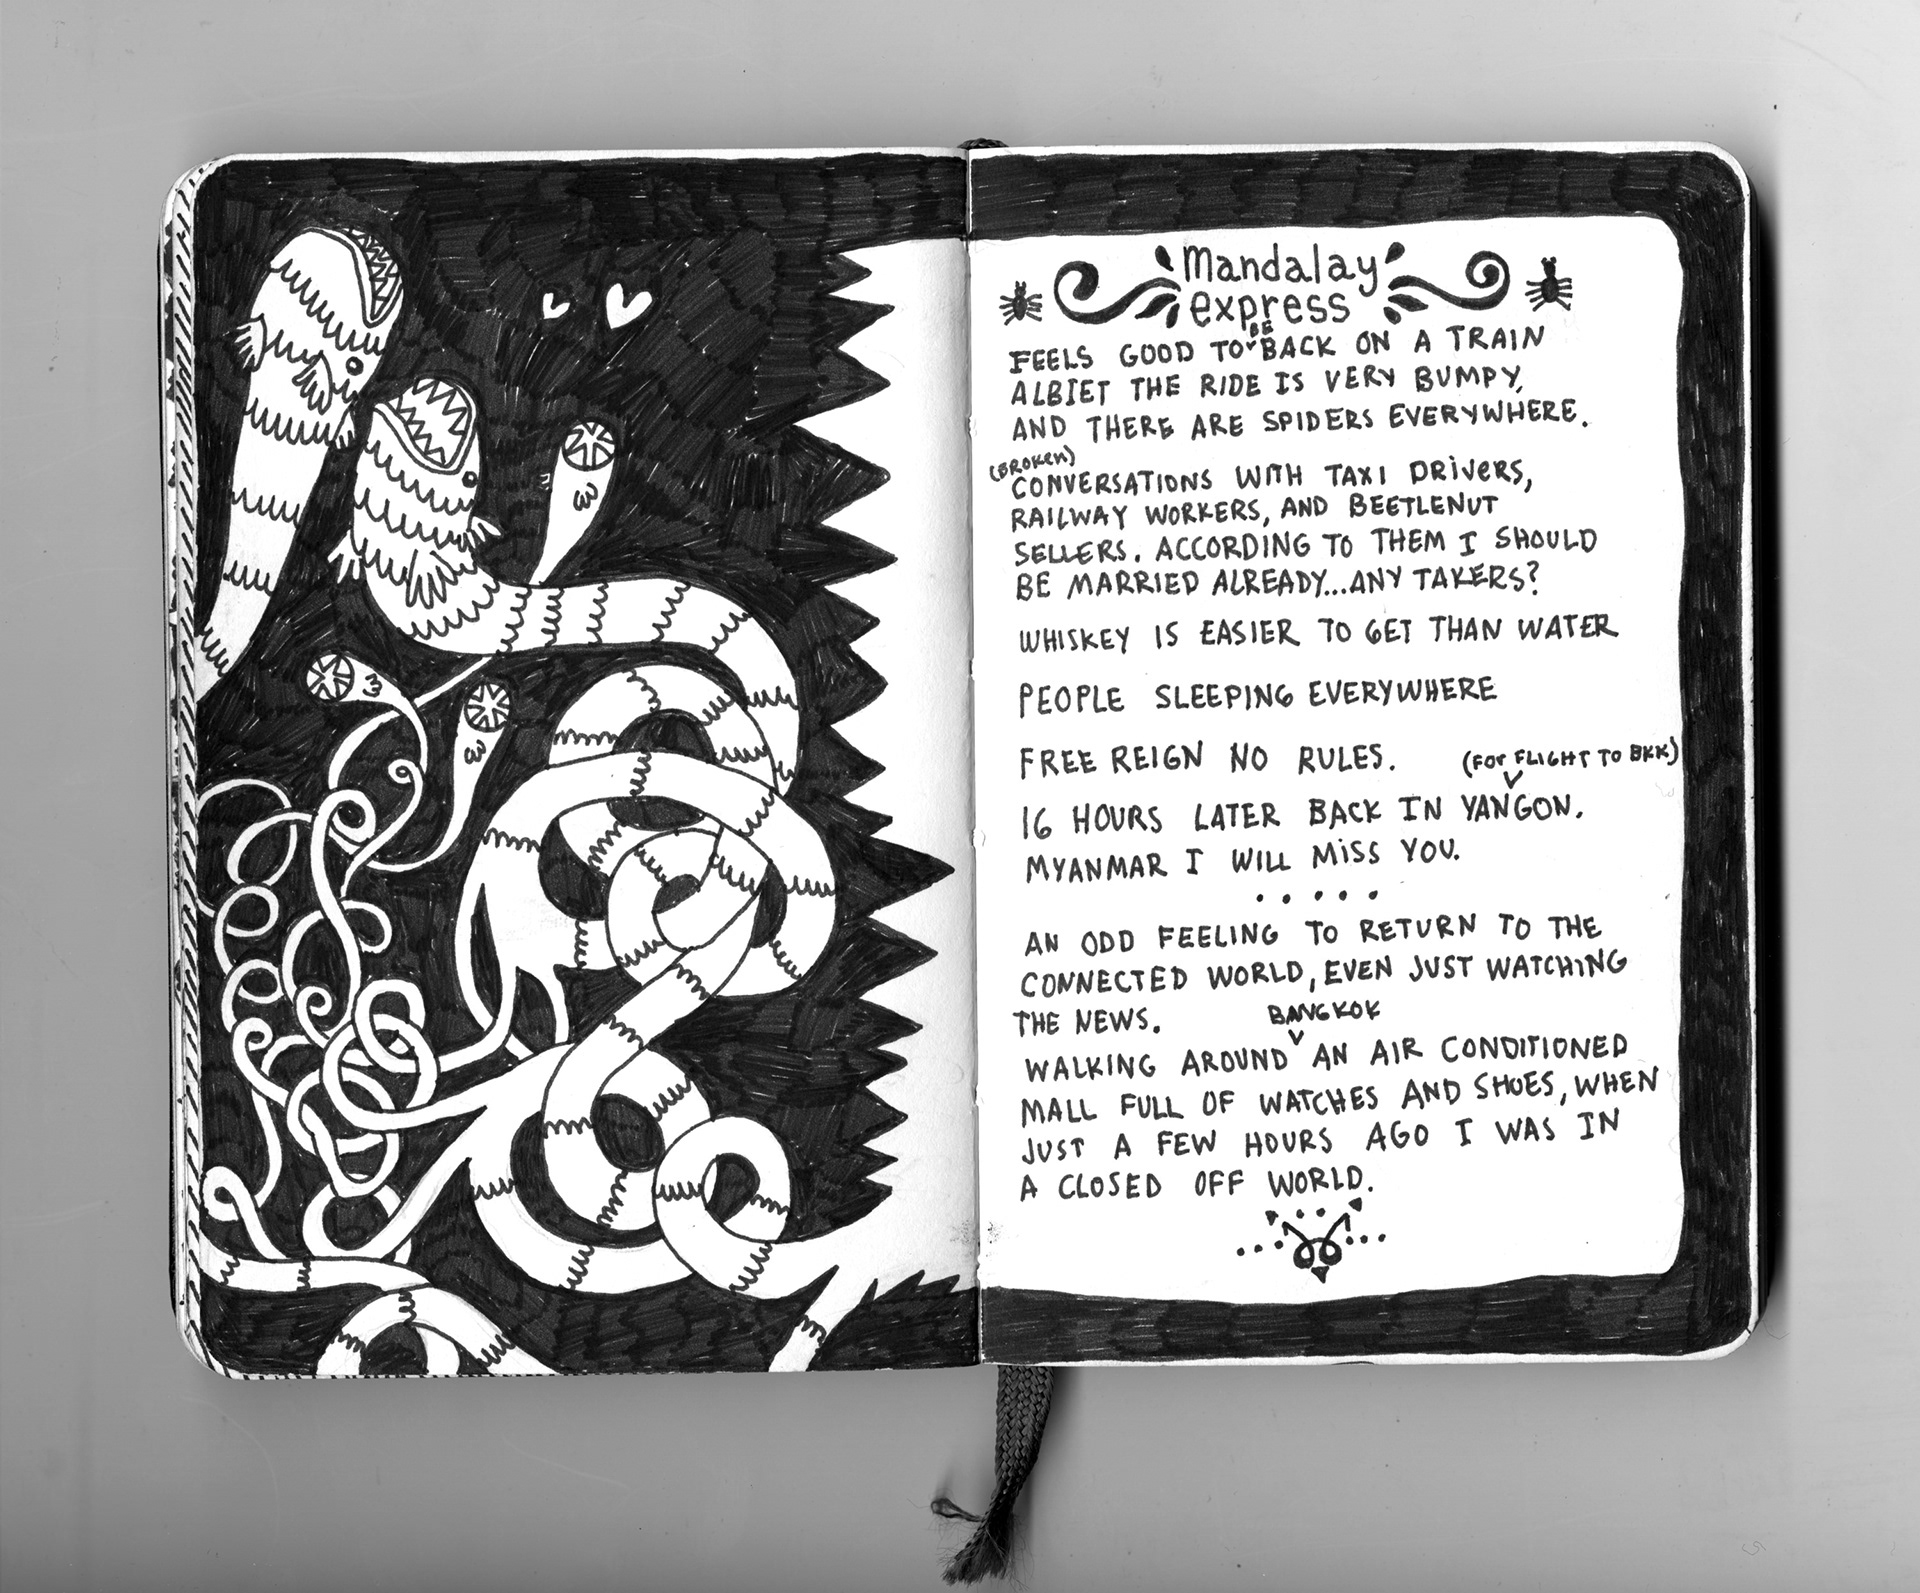 mandalay
express
FEELS GOOD TO BE BACK ON A TRAIN
ALBIET THE RIDE IS VERY BUMPY,
AND THERE ARE SPIDERS EVERYWHERE.
(BROKEN)
CONVERSATIONS WITH TAXI DRIVERS,
RAILWAY WORKERS, AND BEETLENUT
SELLERS. ACCORDING TO THEM I SHOULD
BE MARRIED ALREADY...ANY TAKERS?
WHISKEY IS EASIER TO GET THAN WATER
PEOPLE SLEEPING EVERYWHERE
FREE REIGN NO RULES.
(FOR FLIGHT TO BKK)
16 HOURS LATER BACK IN YANGON.
MYANMAR I WILL MISS YOU.
AN ODD FEELING TO RETURN TO THE
CONNECTED WORLD, EVEN JUST WATCHING
THE NEWS.
BANGKOK
WALKING AROUND AN AIR CONDITIONED
MALL FULL OF WATCHES AND SHOES, WHEN
JUST A FEW HOURS AGO I WAS IN
A CLOSED OFF WORLD.